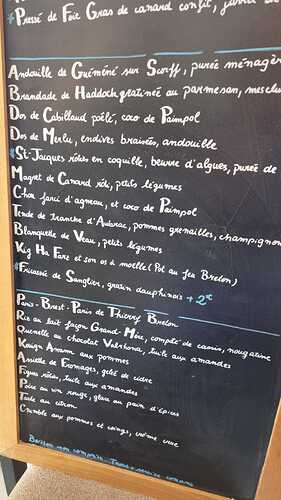 *Pressé de Foie Gras de canard confit,
Andouille de Guéméné sur Scorff, purée ménagèr
Brandade de Haddock gratinée au parmesan, mesclu
Dos de Cabillaud poêlé, coco de Paimpol
Dos de Merlu, endives braisées, andouille
*St-Jacques rôties en coquille, beurre d'algues, purée de
Magret de Canard rôti, petits légumes
Chou farci d'agneau, et coco de Paimpol
Tende de tranche d'Aubrac, pommes grenailles, champignon
Blanquette de Veau, petits légumes
Kig Ha Farz et son os à moelle (Pot au feu Breton)
*Fricassée de Sanglier, gratin dauphinois + 2€
Paris-Brest-Paris de Thierry Breton
Riz au lait façon Grand-Mère, compoté de cassis, nougatine
Quenelle au chocolat Valrhona, tuile aux amandes
Kouign Amann aux pommes
Assiette de Fromages, gelée de cidre
Figues rôties, tuile aux amandes
Poire au vin rouge, glace au pain d'épices
Tarte au citron
Crumble aux pommes et coings, crème crue
Boisson non comprise - Taxes et service compris